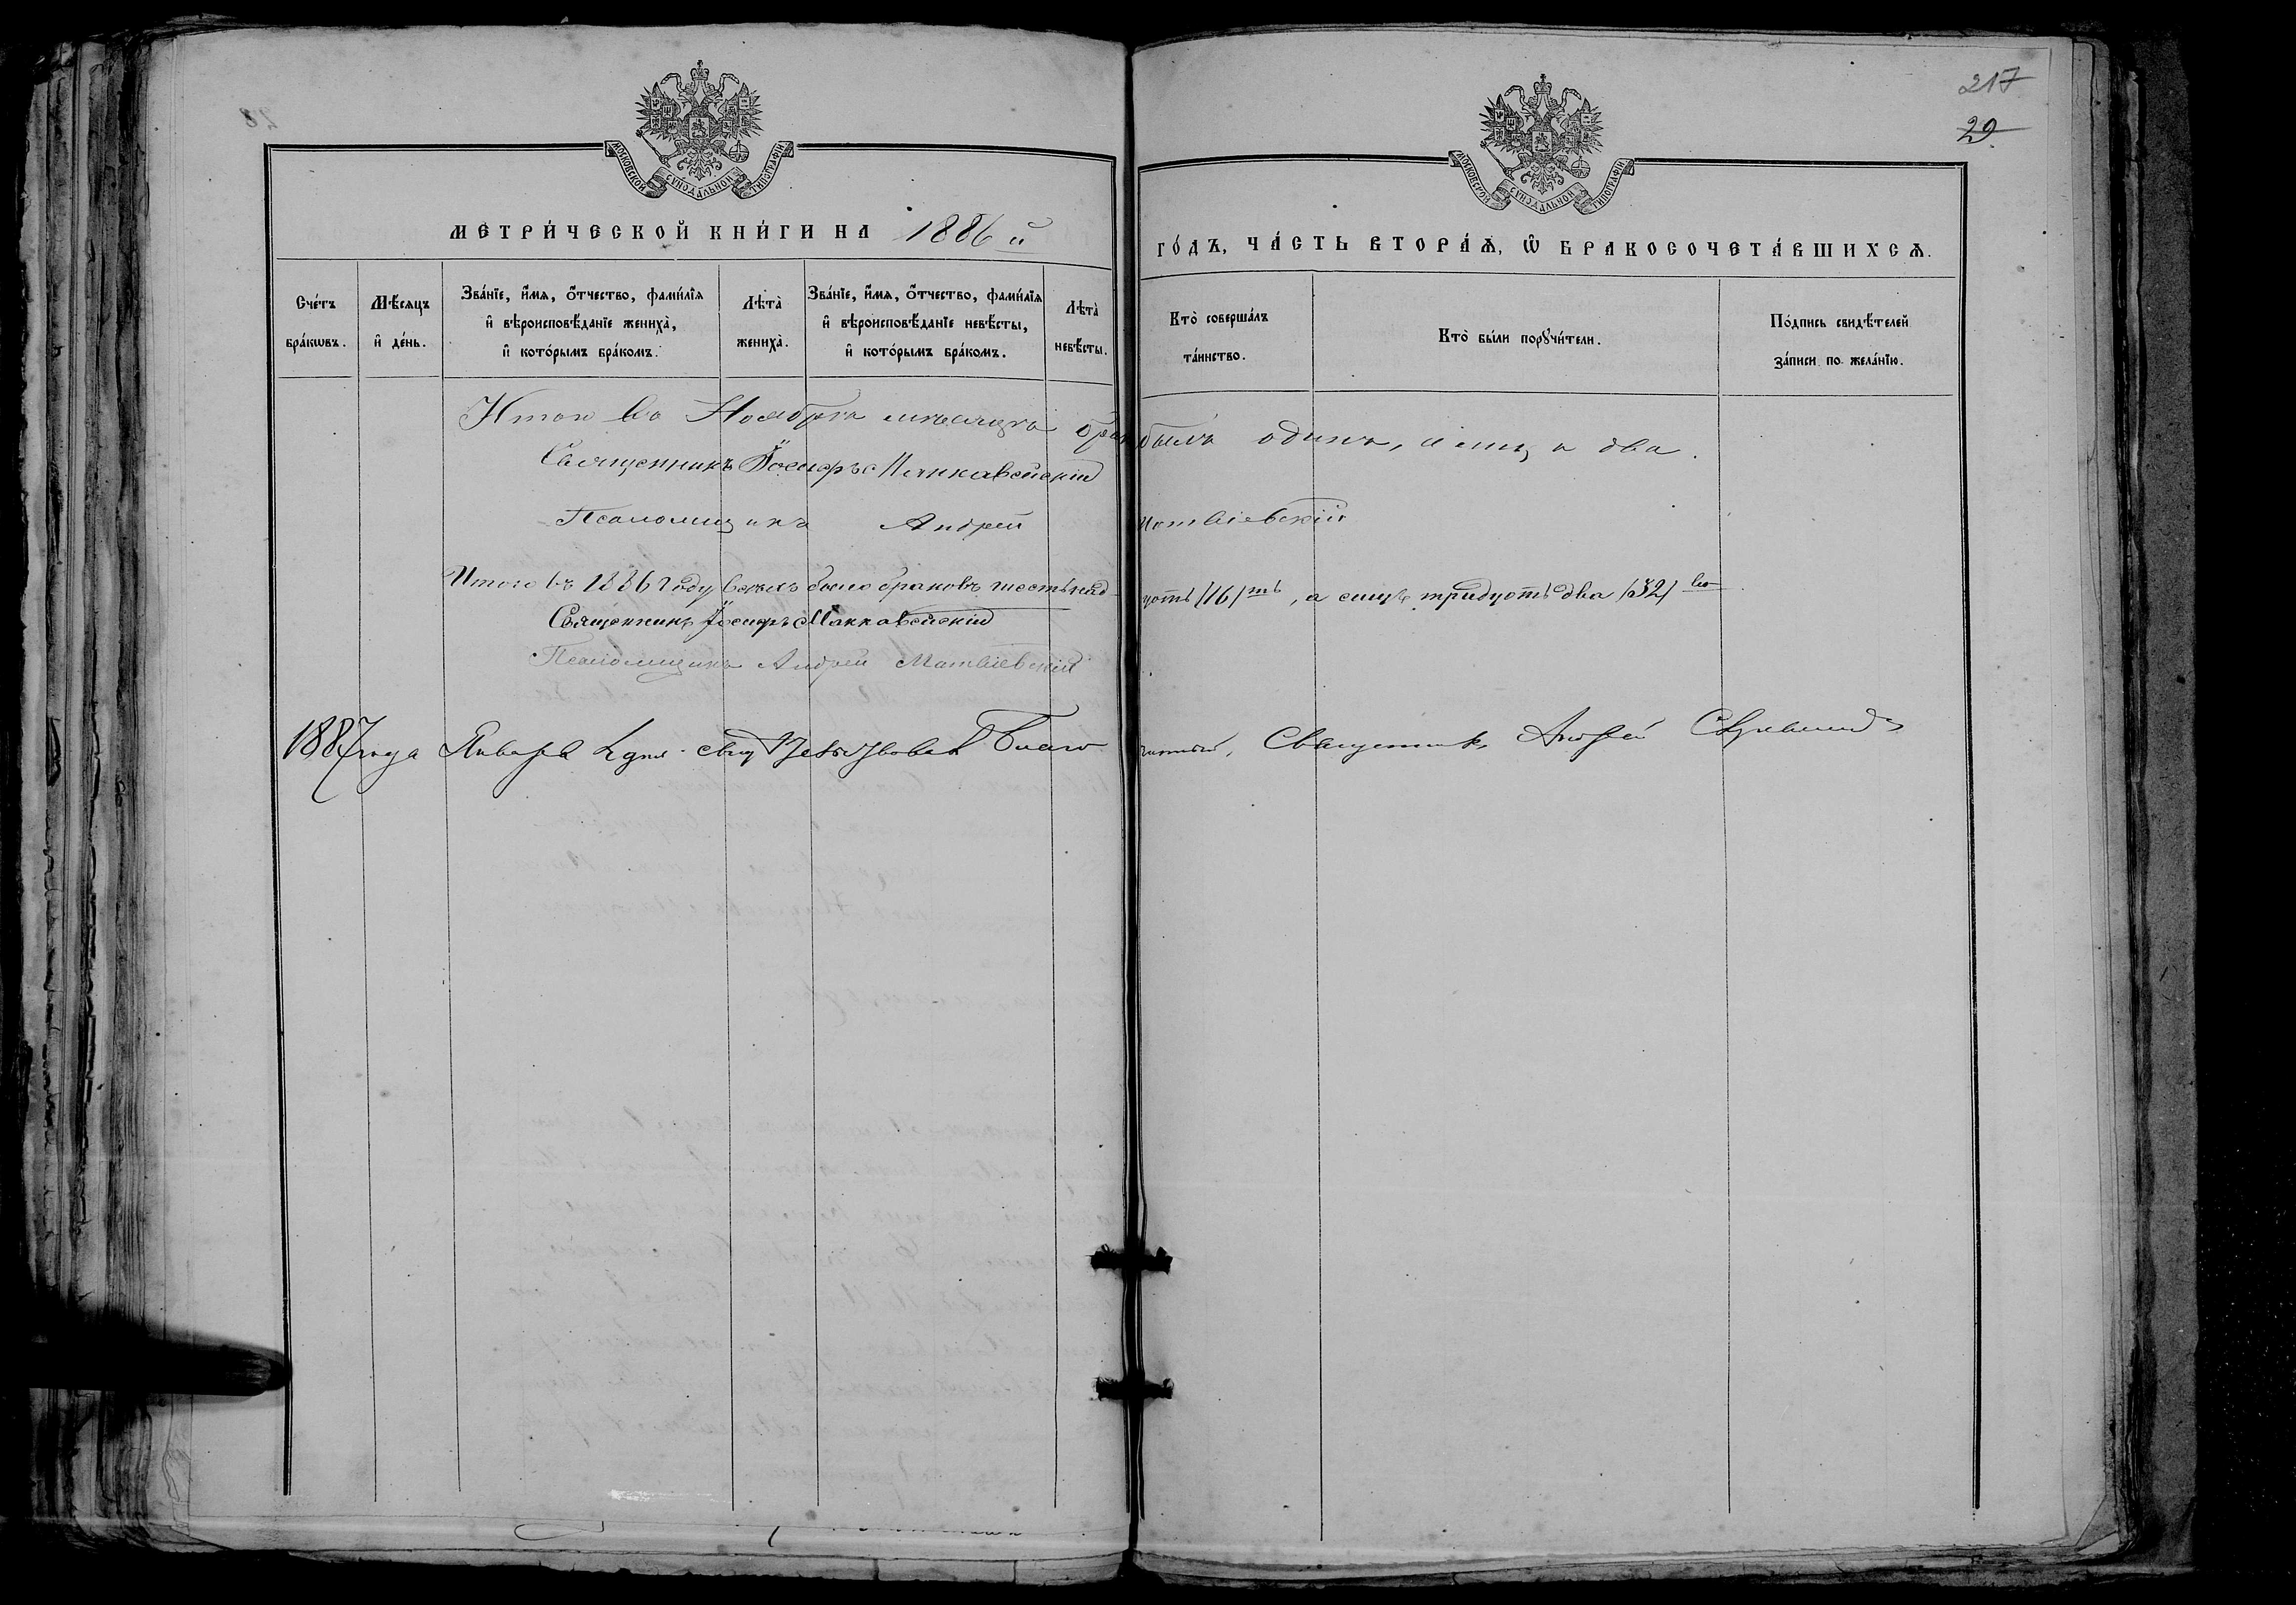 217
29
МОСКОВСКОЙ СѴНОДАЛЬНОЙ ТИПОГРАФІИ
МОСКОВСКОЙ СѴНОДАЛЬНОЙ ТИПОГРАФІИ
МЕТРИ́ЧЕСКОЙ КНИ́ГИ НА 1886 й ГО́ДЪ, ЧА́СТЬ ВТОРА́Ѧ, Ѽ БРАКОСОЧЕТА́ВШИХСѦ.
Сче́тъ бра́кѡвъ.
Мѣ́сяцъ и҆ де́нь.
Зва́нїе, и҆́мя, ѻ҆́тчество, фами́лїя и҆ вѣроисповѣ́данїе жениха̀, и҆ кото́рымъ бра́комъ.
Лѣта̀ жениха̀.
Зва́нїе, и҆́мя, ѻ҆́тчество, фами́лїя и҆ вѣроисповѣ́данїе невѣ́сты, и҆ кото́рымъ бра́комъ.
Лѣта̀ невѣ́сты.
Кто̀ соверша́лъ та́инство.
Кто̀ бы́ли порꙋчи́тели.
По́дпись свидѣ́телей за́писи по жела́нїю.
Итого во Ноябрѣ мѣсяцѣ бракъ былъ одинъ, а лицъ два.
Священникъ Іосифъ Маккавейскій
Псаломщикъ Андрей Матвіевскій
Итого въ 1886 году всѣхъ было браковъ шестьнадцать (16)ть, а лицъ тридцать два (32) ва
Священникъ Іосифъ Маккавейскій
Псаломщикъ Андрей Матвіевскій
1887 года Января дня свидѣтельствовалъ Благочинный, Священникъ Андрей